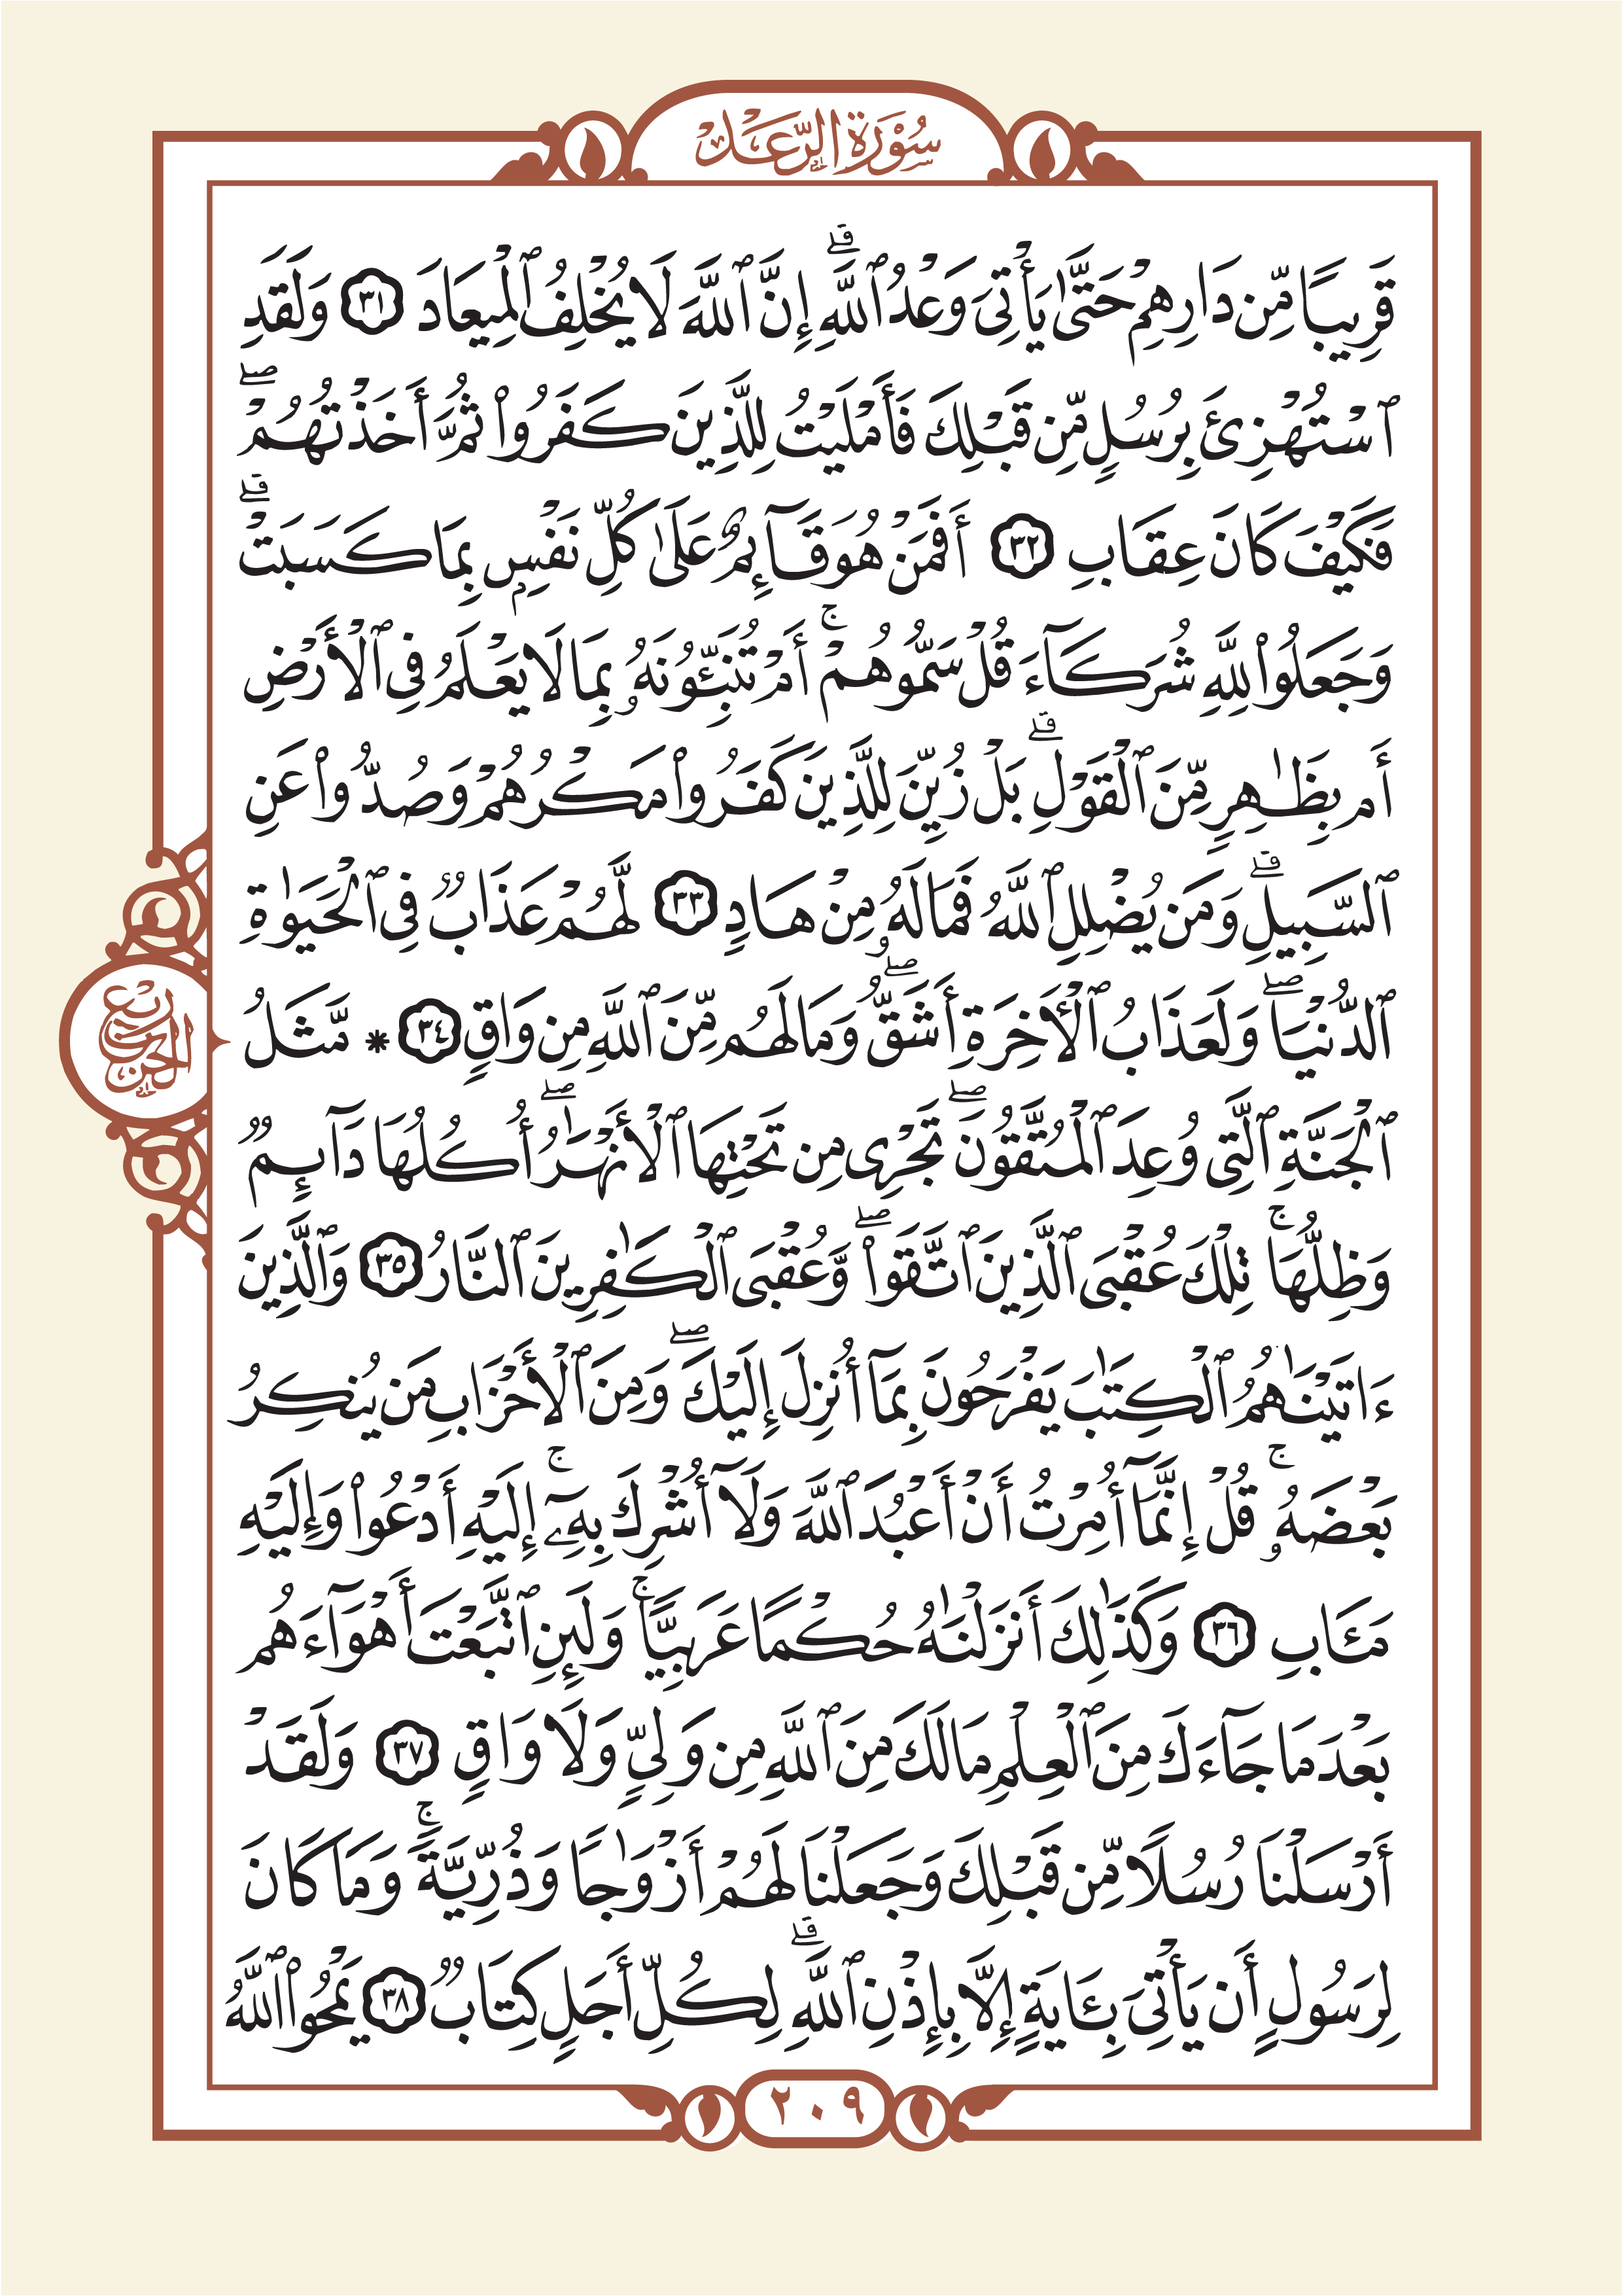 سُورَةُ الرَّعْدِ
قَرِيبًا مِّن دَارِهِمْ حَتَّىٰ يَأْتِىَ وَعْدُ ٱللَّهِ ۗ إِنَّ ٱللَّهَ لَا يُخْلِفُ ٱلْمِيعَادَ ٣١ وَلَقَدِ
ٱسْتُهْزِئَ بِرُسُلٍ مِّن قَبْلِكَ فَأَمْلَيْتُ لِلَّذِينَ كَفَرُوا۟ ثُمَّ أَخَذْتُهُمْ ۖ
فَكَيْفَ كَانَ عِقَابِ ٣٢ أَفَمَنْ هُوَ قَآئِمٌ عَلَىٰ كُلِّ نَفْسٍۭ بِمَا كَسَبَتْ ۗ
وَجَعَلُوا۟ لِلَّهِ شُرَكَآءَ قُلْ سَمُّوهُمْ ۚ أَمْ تُنَبِّـُٔونَهُۥ بِمَا لَا يَعْلَمُ فِى ٱلْأَرْضِ
أَم بِظَـٰهِرٍ مِّنَ ٱلْقَوْلِ ۗ بَلْ زُيِّنَ لِلَّذِينَ كَفَرُوا۟ مَكْرُهُمْ وَصُدُّوا۟ عَنِ
ٱلسَّبِيلِ ۗ وَمَن يُضْلِلِ ٱللَّهُ فَمَا لَهُۥ مِنْ هَادٍ ٣٣ لَّهُمْ عَذَابٌ فِى ٱلْحَيَوٰةِ
ٱلدُّنْيَا ۖ وَلَعَذَابُ ٱلْـَٔاخِرَةِ أَشَقُّ ۖ وَمَا لَهُم مِّنَ ٱللَّهِ مِن وَاقٍ ٣٤ * مَّثَلُ
ٱلْجَنَّةِ ٱلَّتِى وُعِدَ ٱلْمُتَّقُونَ ۖ تَجْرِى مِن تَحْتِهَا ٱلْأَنْهَـٰرُ ۖ أُكُلُهَا دَآئِمٌ
وَظِلُّهَا ۚ تِلْكَ عُقْبَى ٱلَّذِينَ ٱتَّقَوا۟ ۖ وَّعُقْبَى ٱلْكَـٰفِرِينَ ٱلنَّارُ ٣٥ وَٱلَّذِينَ
ءَاتَيْنَـٰهُمُ ٱلْكِتَـٰبَ يَفْرَحُونَ بِمَآ أُنزِلَ إِلَيْكَ ۖ وَمِنَ ٱلْأَحْزَابِ مَن يُنكِرُ
بَعْضَهُۥ ۚ قُلْ إِنَّمَآ أُمِرْتُ أَنْ أَعْبُدَ ٱللَّهَ وَلَآ أُشْرِكَ بِهِۦٓ ۚ إِلَيْهِ أَدْعُوا۟ وَإِلَيْهِ
مَـَٔابِ ٣٦ وَكَذَٰلِكَ أَنزَلْنَـٰهُ حُكْمًا عَرَبِيًّا ۚ وَلَئِنِ ٱتَّبَعْتَ أَهْوَآءَهُم
بَعْدَ مَا جَآءَكَ مِنَ ٱلْعِلْمِ مَا لَكَ مِنَ ٱللَّهِ مِن وَلِىٍّ وَلَا وَاقٍ ٣٧ وَلَقَدْ
أَرْسَلْنَا رُسُلًا مِّن قَبْلِكَ وَجَعَلْنَا لَهُمْ أَزْوَٰجًا وَذُرِّيَّةً ۚ وَمَا كَانَ
لِرَسُولٍ أَن يَأْتِىَ بِـَٔايَةٍ إِلَّا بِإِذْنِ ٱللَّهِ ۗ لِكُلِّ أَجَلٍ كِتَابٌ ٣٨ يَمْحُوا۟ ٱللَّهُ
ربع
الحزب
٢٠٩